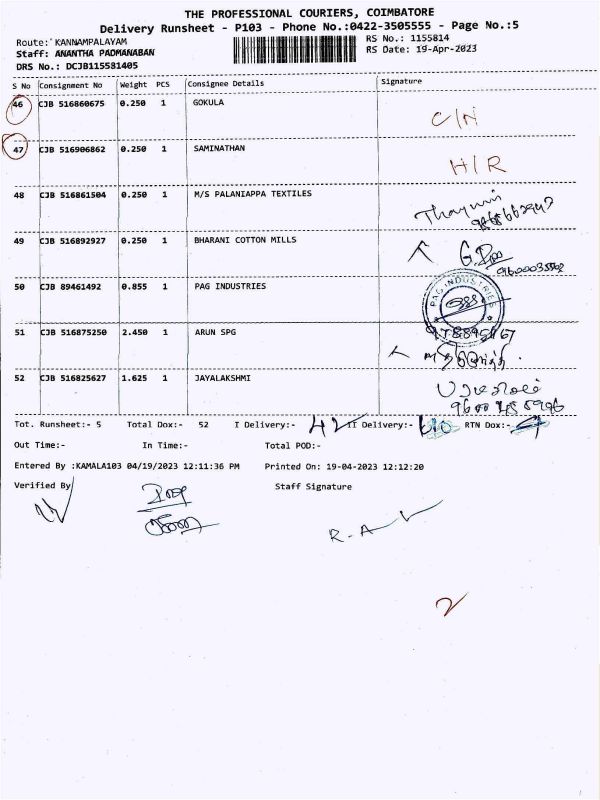 THE PROFESSIONAL COURIERS, COIMBATORE
Delivery Runsheet - P103 - Phone No.:0422-3505555 - Page No.:5
Route: KANNAMPALAYAM RS No.: 1155814
Staff: ANANTHA PADMANABAN RS Date: 19-Apr-2023
DRS No.: DCJB115581405
S No Consignment No Weight PCS Consignee Details Signature
46 CJB 516860675 0.250 1 GOKULA C/N
47 CJB 516906862 0.250 1 SAMINATHAN H/R
48 CJB 516861504 0.250 1 M/S PALANIAPPA TEXTILES
49 CJB 516892927 0.250 1 BHARANI COTTON MILLS
50 CJB 89461492 0.855 1 PAG INDUSTRIES PAG INDUSTRIES
51 CJB 516875250 2.450 1 ARUN SPG
52 CJB 516825627 1.625 1 JAYALAKSHMI
Tot. Runsheet:- 5 Total Dox:- 52 I Delivery:- 42 II Delivery:- RTN Dox:-
Out Time:- In Time:- Total POD:-
Entered By :KAMALA103 04/19/2023 12:11:36 PM Printed On: 19-04-2023 12:12:20
Verified By Staff Signature
R-A
2